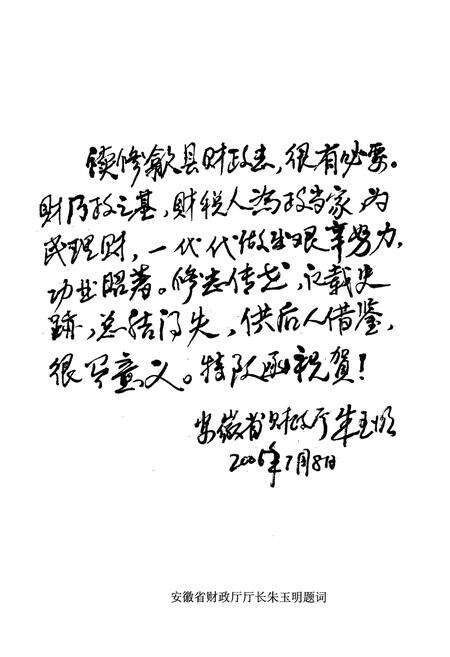 续修歙县财政志，很有必要。
财乃政之基，财税人为政当家，为
民理财，一代代做出艰辛努力，
功业昭著。修志传世，记载史
迹，总结得失，供后人借鉴，
很有意义。特致函祝贺！
安徽省财政厅 朱玉明
2006年7月8日
安徽省财政厅厅长朱玉明题词